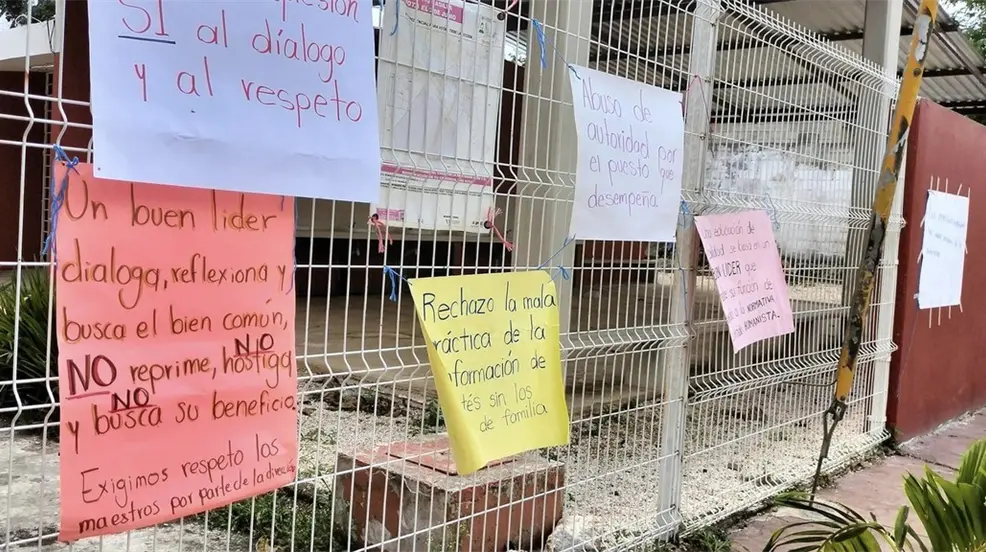 SÍ al díalogo
y al respeto
Un buen lider
dialoga, reflexiona y
busca el bien común,
NO reprime, NO hostiga
y NO busca su beneficio.
Exigimos respeto los
maestros por parte de la dirección
Rechazo la mala
práctica de la
formación de
tés sin los
de familia
Abuso de
autoridad por
el puesto que
desempeña
educación de
se basa en un
LIDER que
su función de
a la NORMATIVA
HUMANISTA.